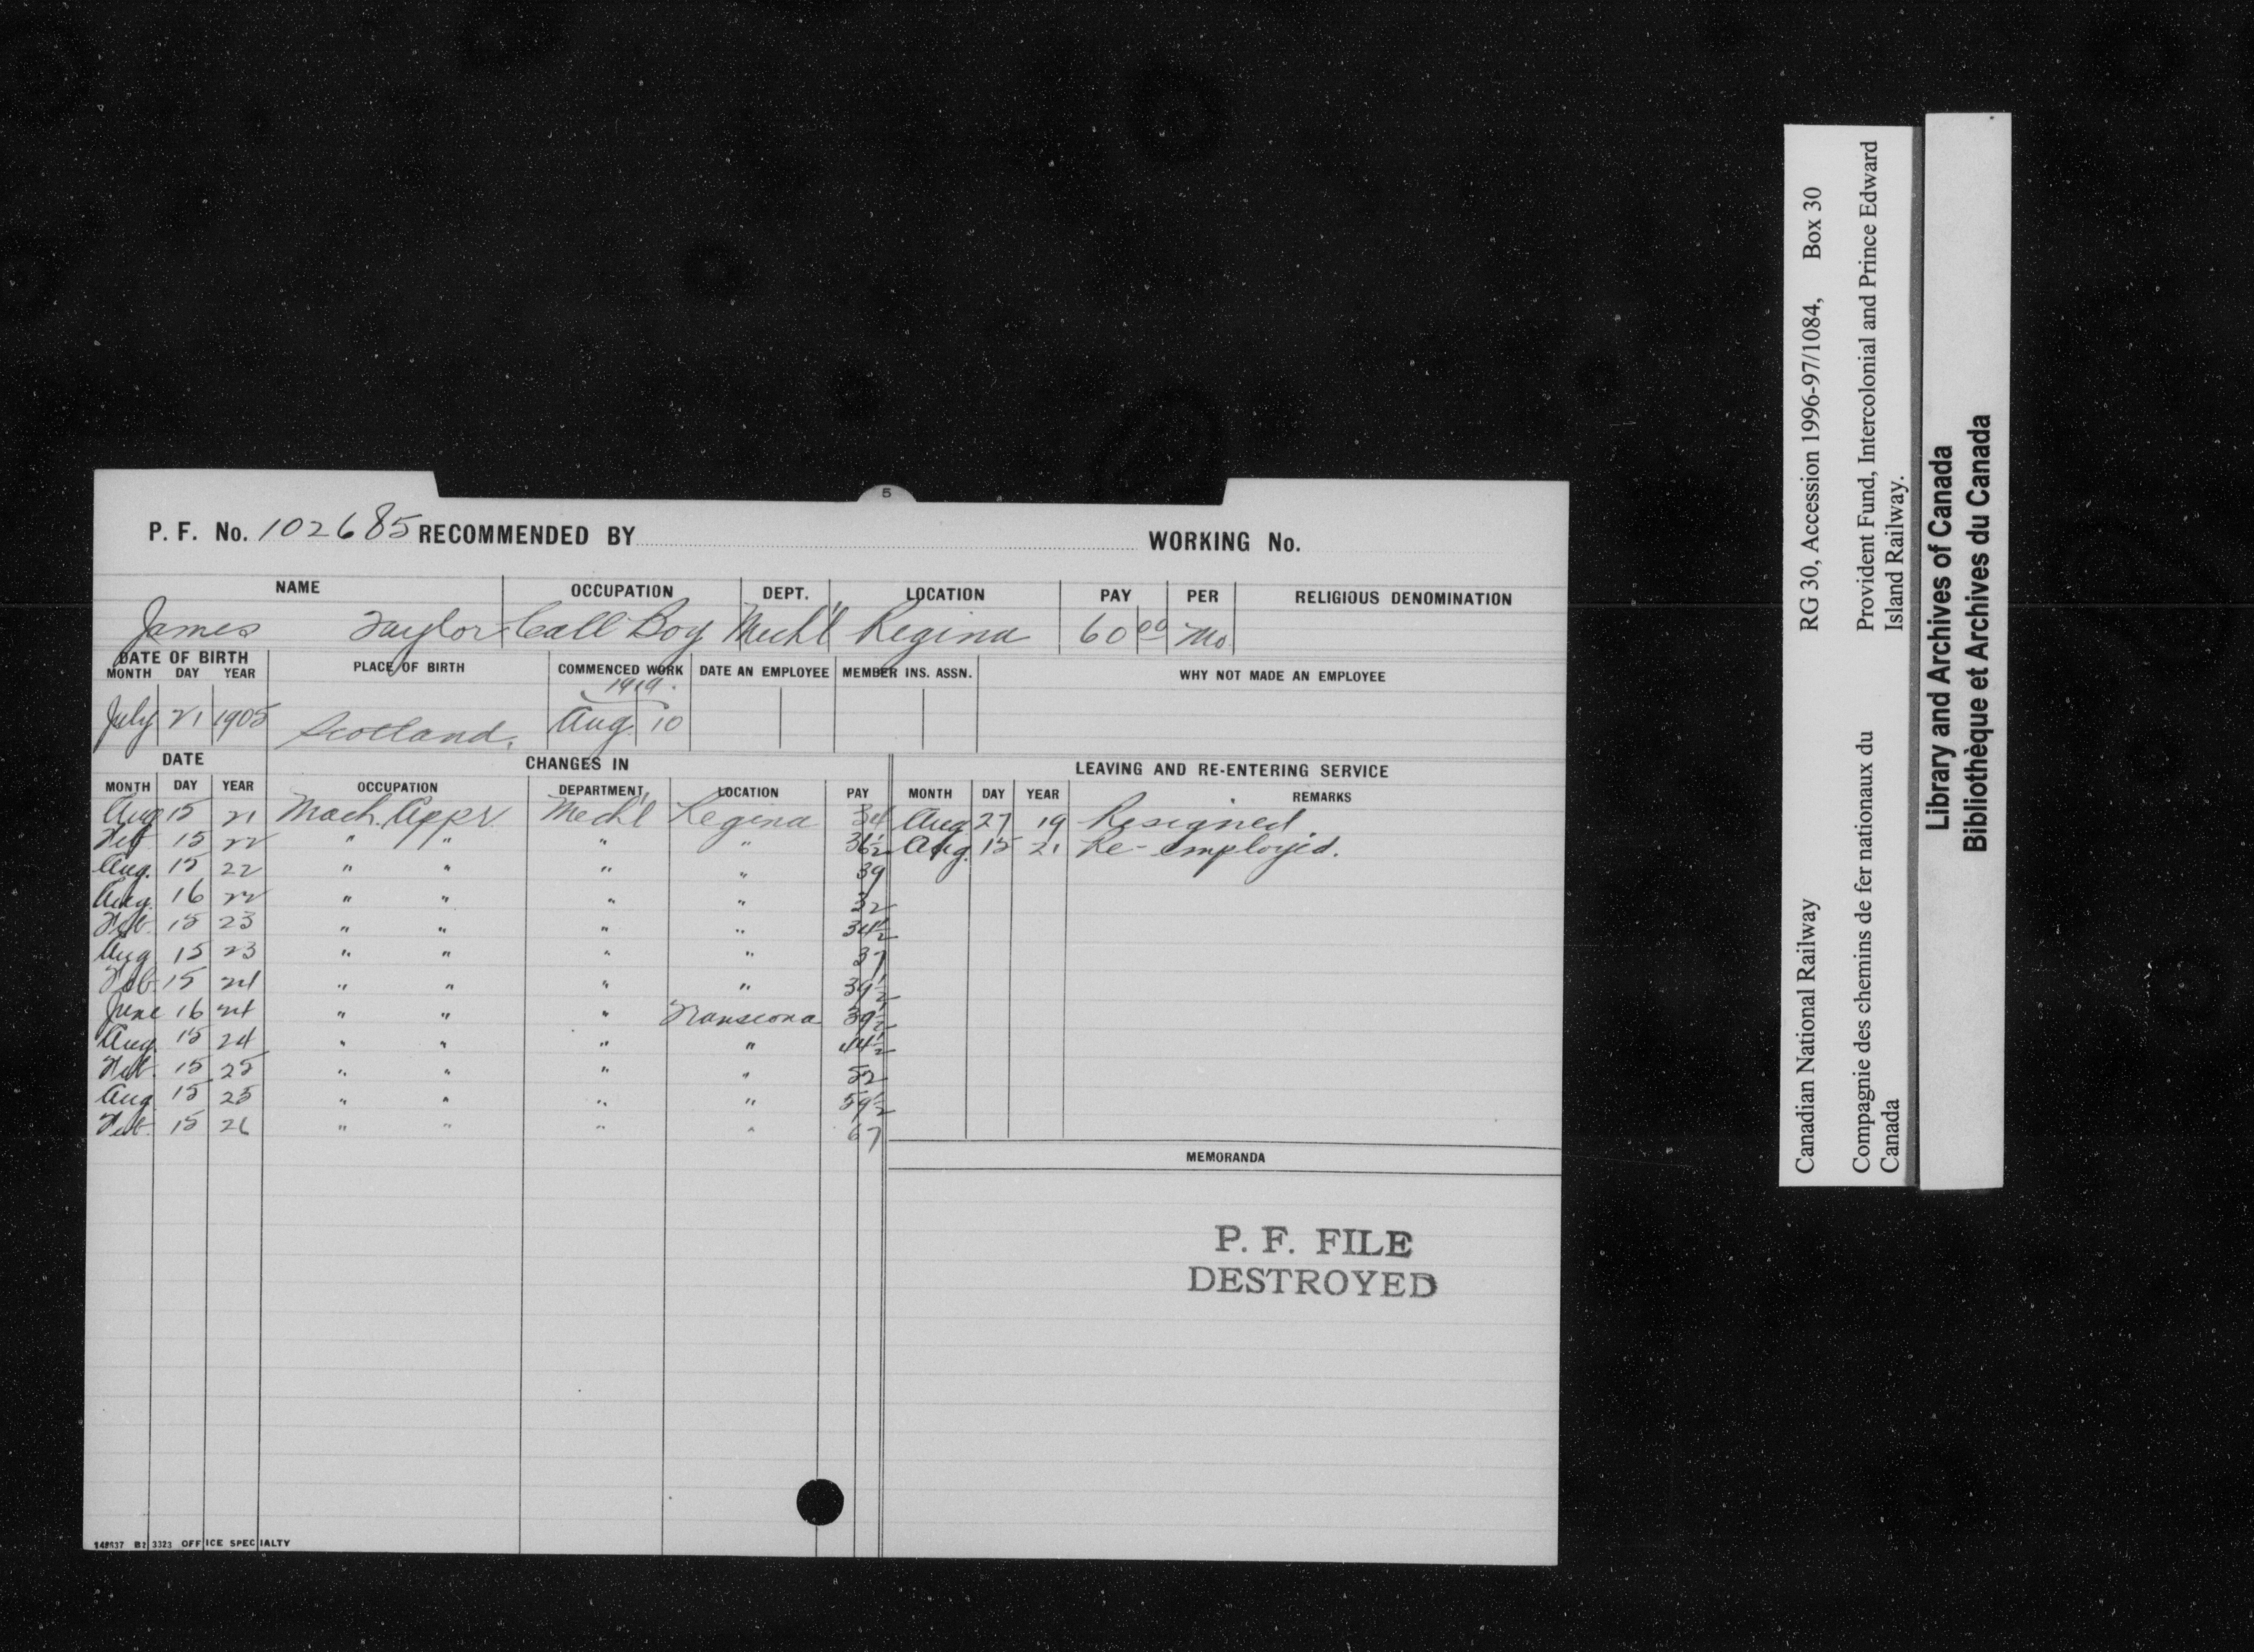 5
P. F. No. 102685 RECOMMENDED BY WORKING No.
NAME OCCUPATION DEPT. LOCATION PAY PER RELIGIOUS DENOMINATION
James Taylor Call Boy Mech'l Regina 60 00 Mo.
DATE OF BIRTH PLACE OF BIRTH COMMENCED WORK DATE AN EMPLOYEE MEMBER INS. ASSN. WHY NOT MADE AN EMPLOYEE
MONTH DAY YEAR
1919.
July 21 1905 Scotland. Aug. 10
DATE CHANGES IN LEAVING AND RE-ENTERING SERVICE
MONTH DAY YEAR OCCUPATION DEPARTMENT LOCATION PAY MONTH DAY YEAR REMARKS
Aug 15 21 Mach. Appr. Mech'l Regina 34 Aug 27 19 Resigned.
Feb 15 22 " " " " 36½ Aug. 15 21 Re-employed.
Aug. 15 22 " " " " 39
Aug. 16 22 " " " " 32
Feb. 15 23 " " " " 34½
Aug 15 23 " " " " 37
Feb. 15 24 " " " " 39½
June 16 24 " " " Transcona 39½
Aug. 15 24 " " " " 44½
Feb. 15 25 " " " " 52
Aug 15 25 " " " " 59½
Feb. 15 26 " " " " 67
MEMORANDA
P. F. FILE
DESTROYED
148637 B2 3323 OFFICE SPECIALTY
Canadian National Railway RG 30, Accession 1996-97/1084, Box 30
Compagnie des chemins de fer nationaux du Canada
Provident Fund, Intercolonial and Prince Edward Island Railway.
Library and Archives of Canada
Bibliothèque et Archives du Canada